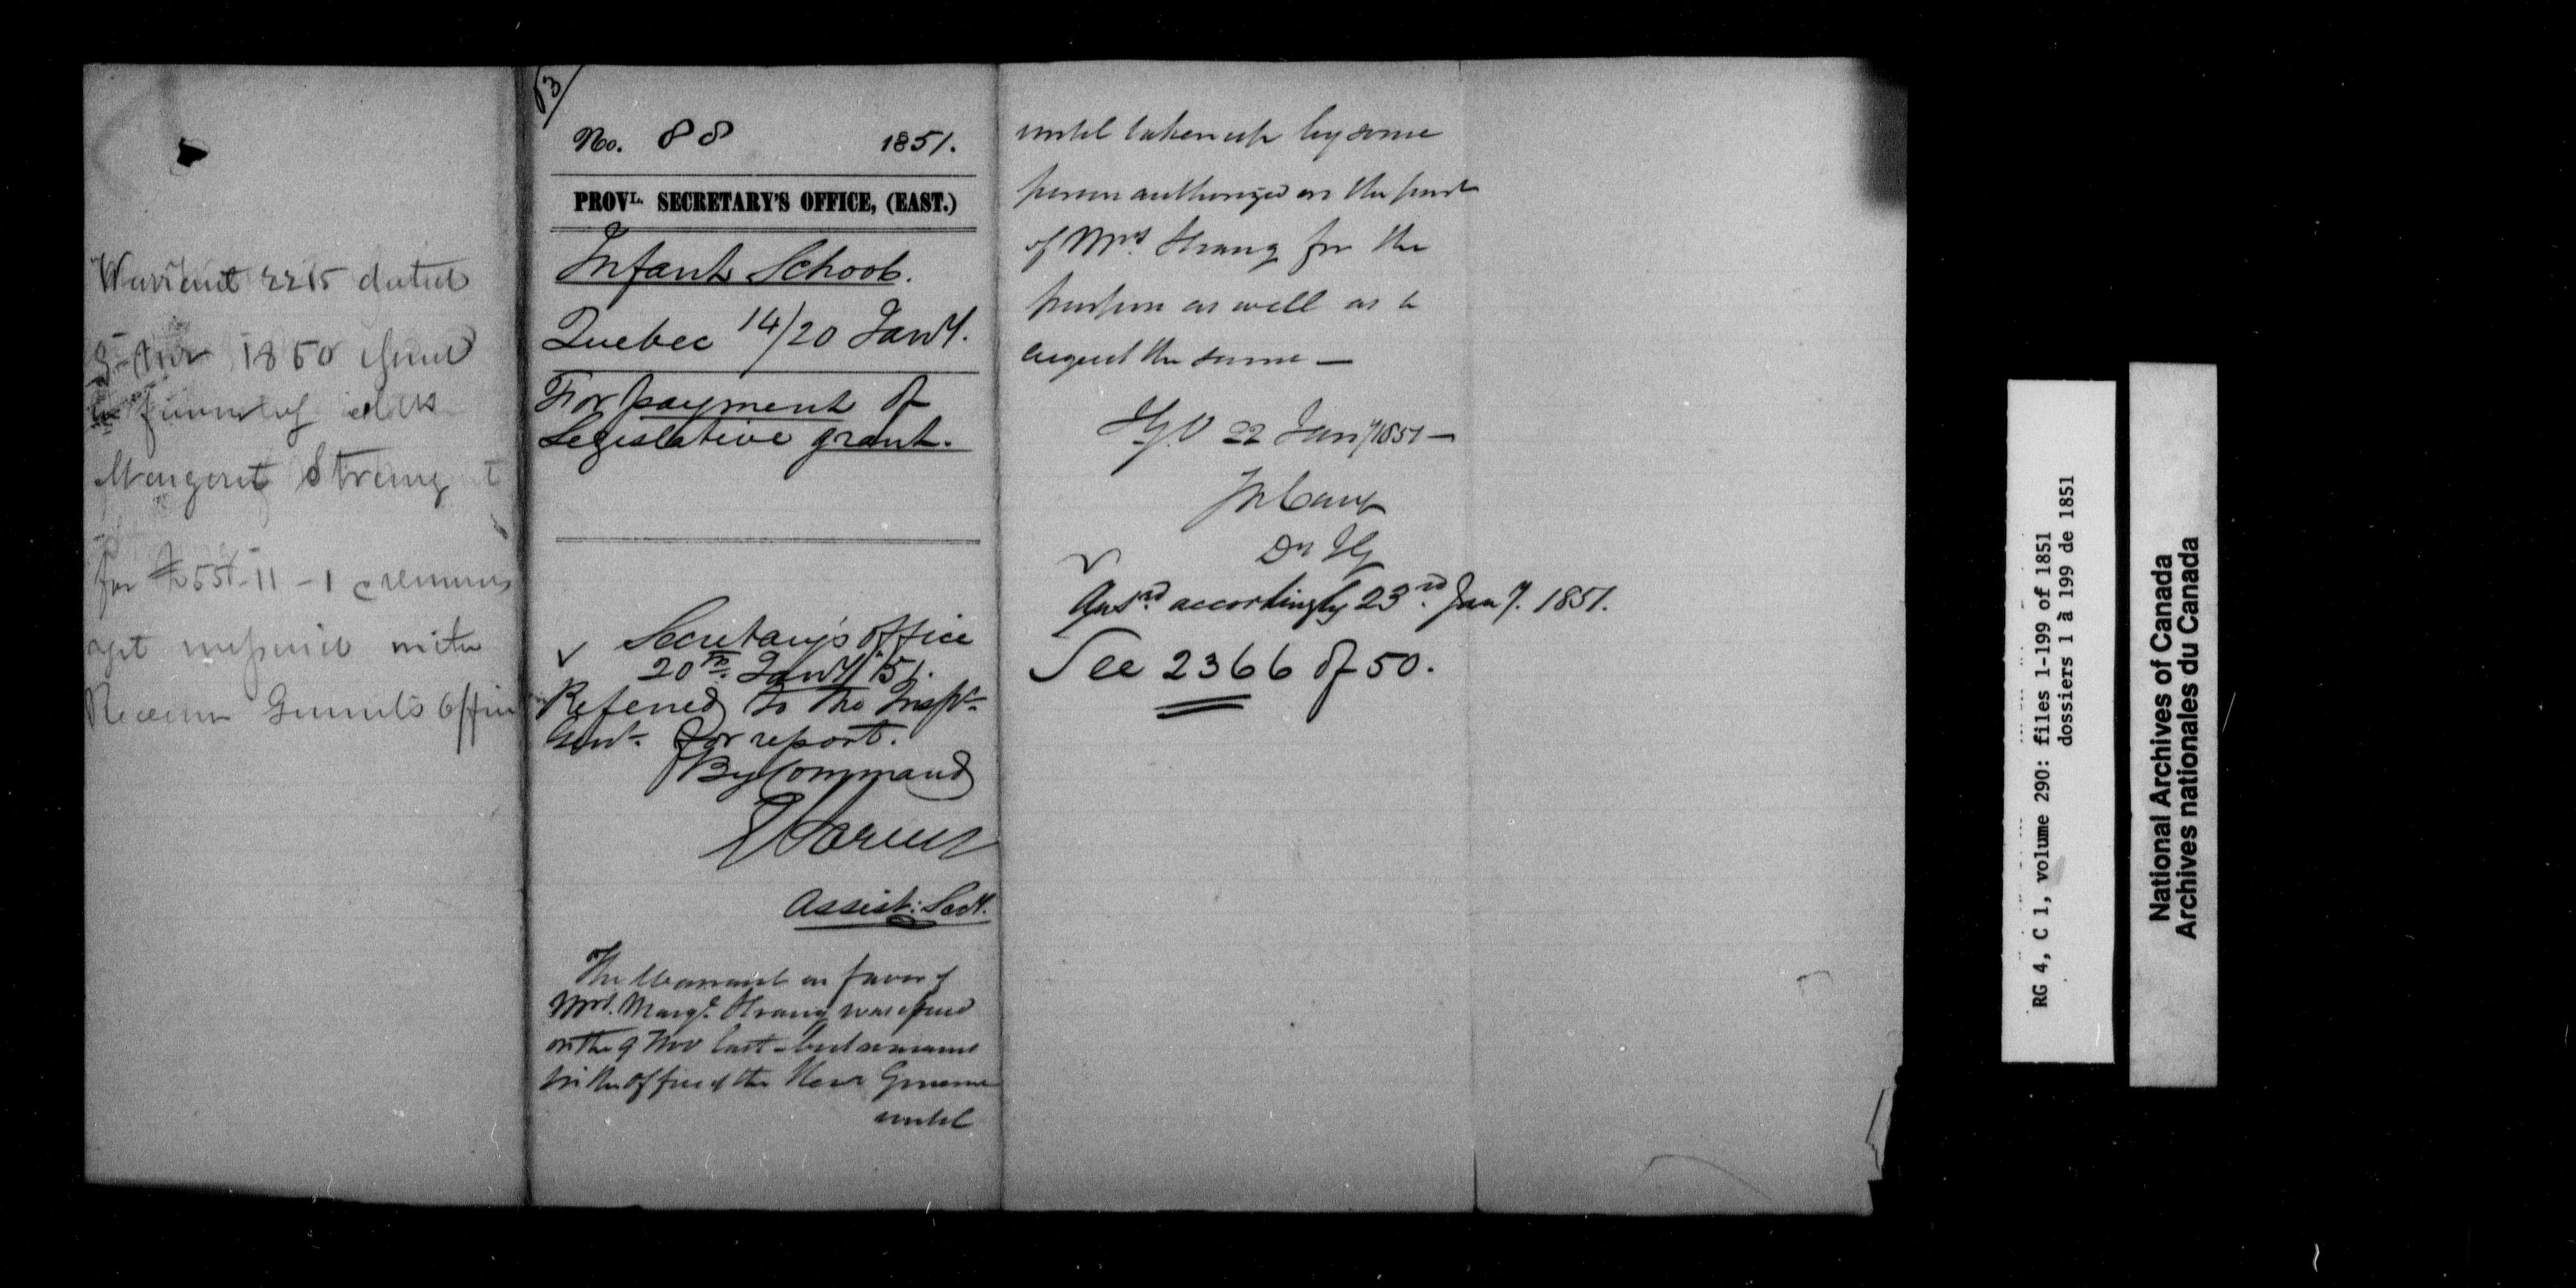 Warrant 2215 dated
9 Nov 1850 issued
in favour of
Margaret Strang
for £55-11-1 remains
yet in
Receiver General's Office
No. 88 1851.
PROVL. SECRETARY'S OFFICE, (EAST.)
Infant School.
Quebec 14/20 Jany.
For payment of
Legislative grant.
Secretary's Office
20th. Jany 51.
Referred to the Inspr.
Genl. for report.
By Command
Assist: Secy.
The Warrant in favor of
Mrs. Margt. Strang was issued
on the 9 Nov last - but remains
in the office of the Recr General
until
until taken up by some
person authorized on the part
of Mrs. Strang for the
purpose as well as to
the same —
22 Jany 1851 —
Jn Cary
Ansrd. accordingly 23rd. Jany. 1851.
See 2366 of 50.
RG 4, C 1, volume 290: files 1-199 of 1851
dossiers 1 à 199 de 1851
National Archives of Canada
Archives nationales du Canada